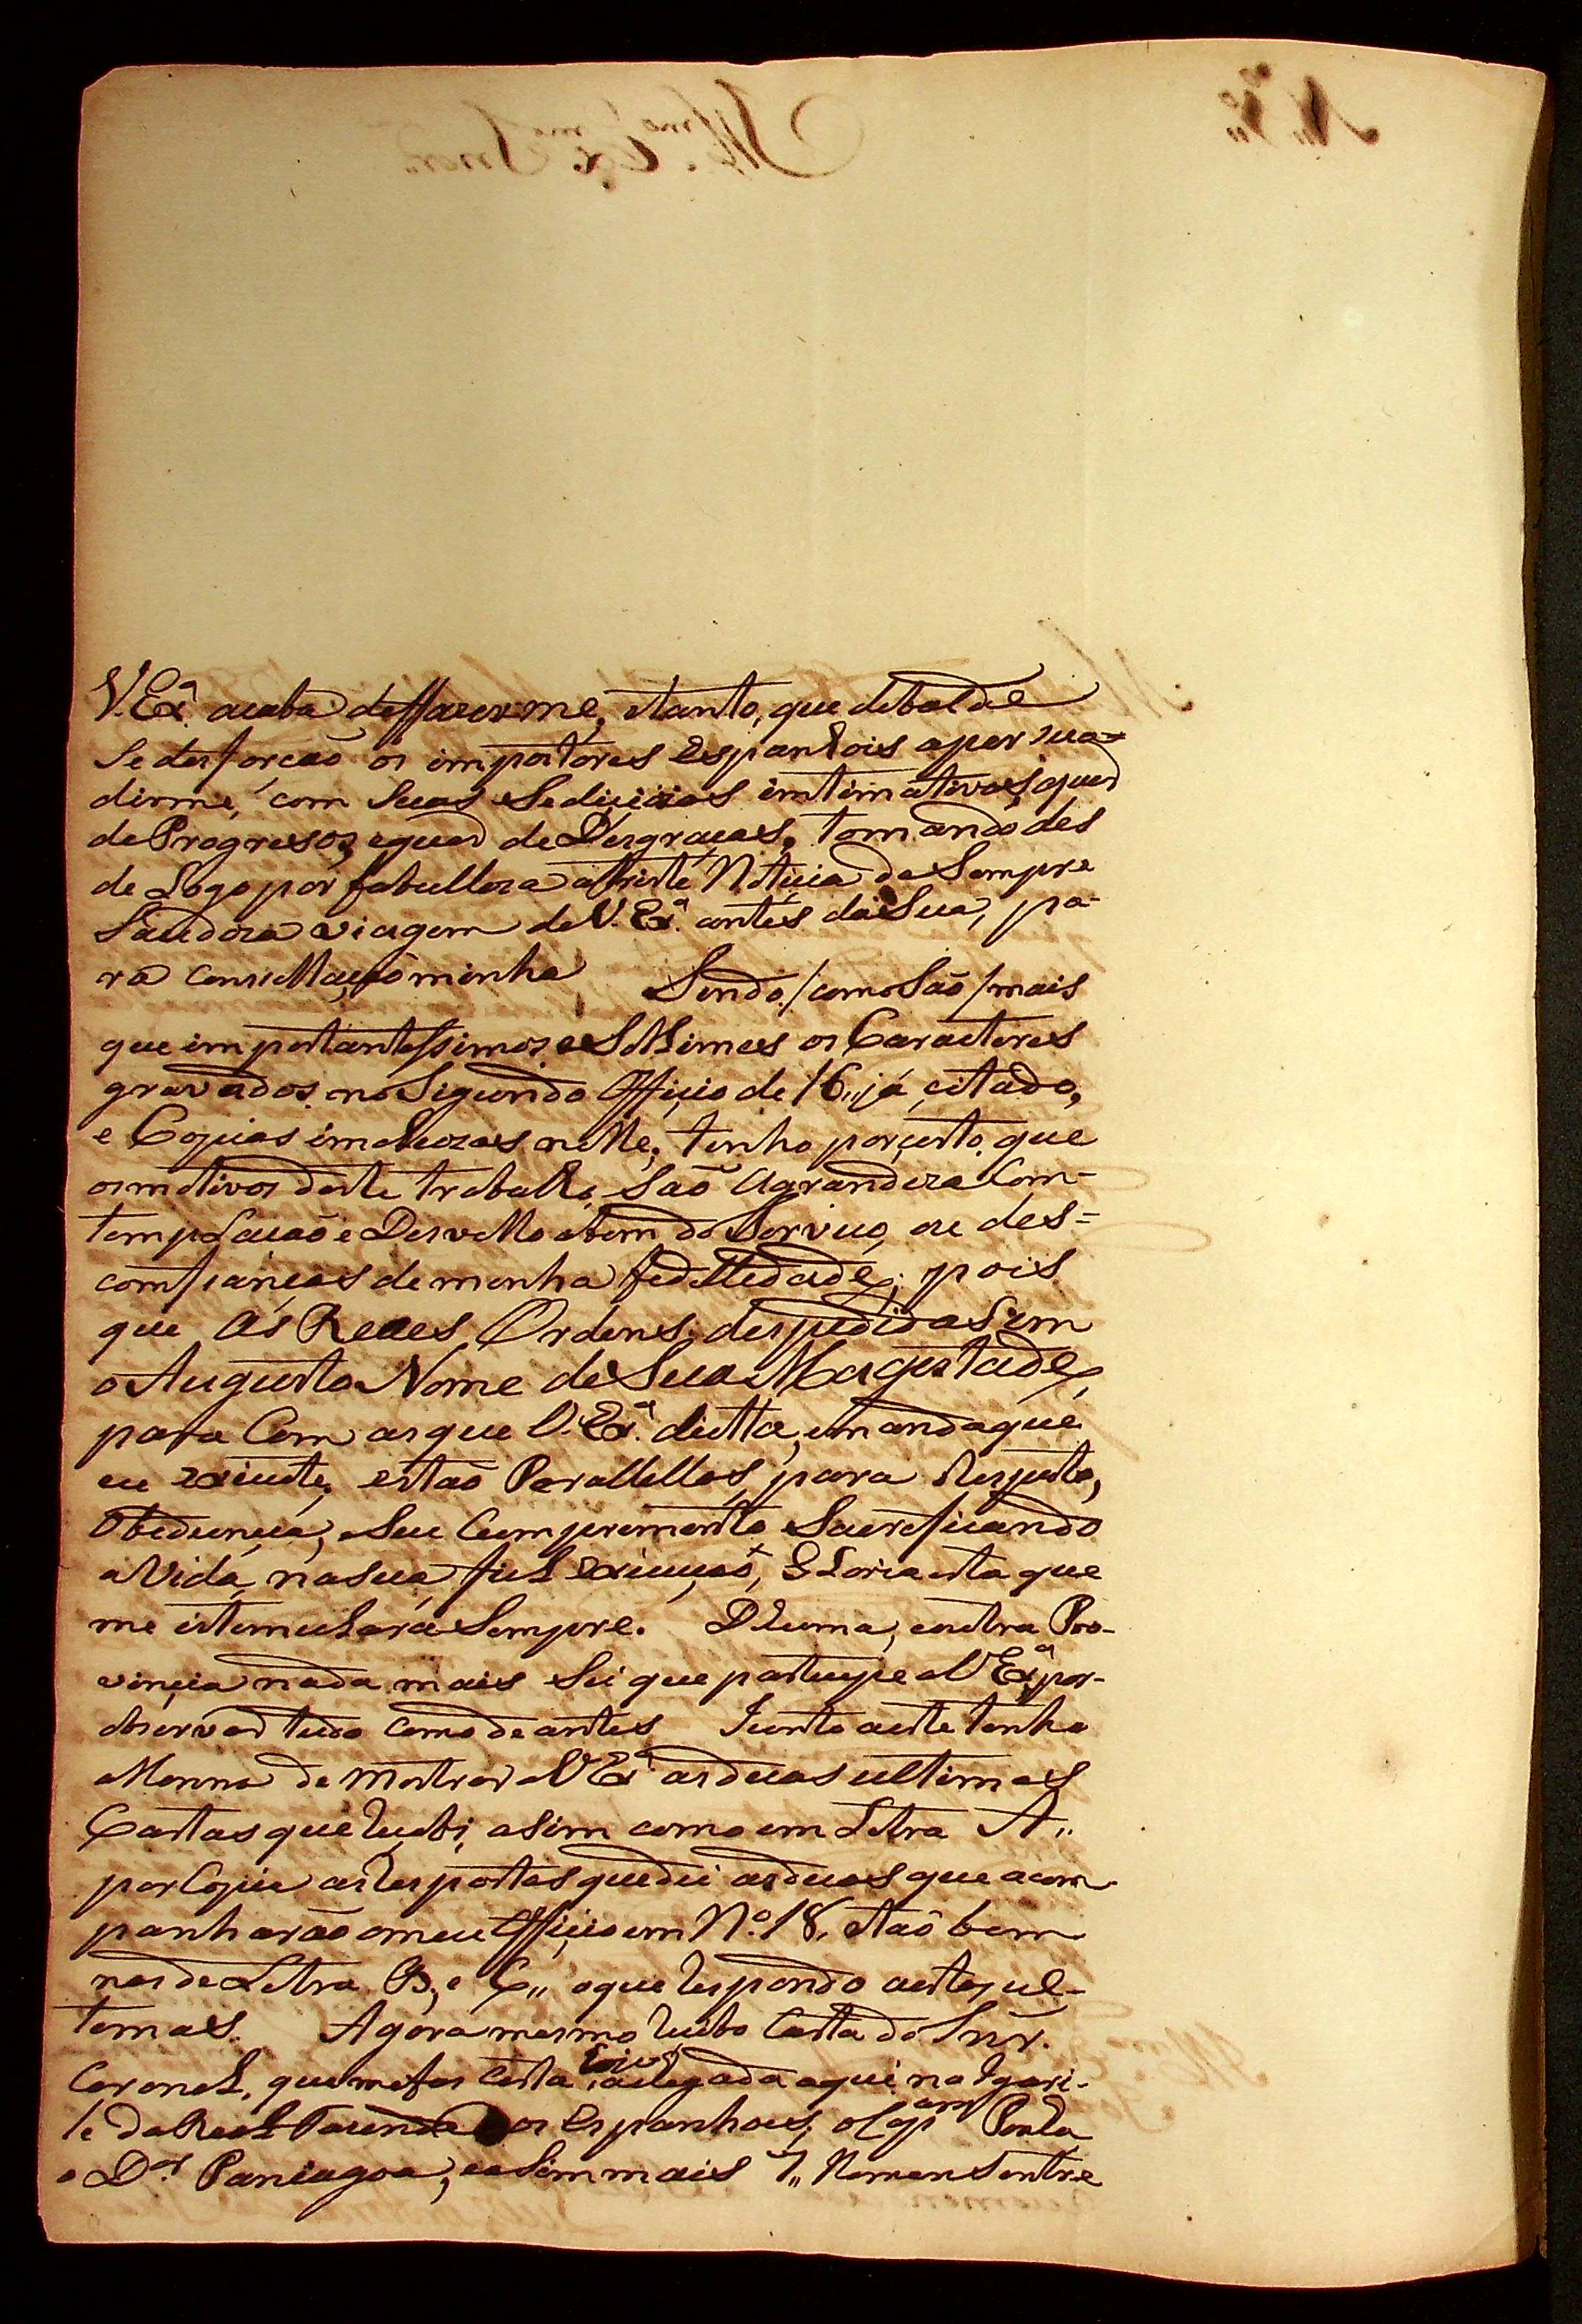 V. Exª. acaba deffazerme, etanto, que debalde
se desforcaõ os impostores Espanhois a persua=
dirme, com suas Sediciozas intimativas, quer
de Progresos, equer de Desgraças, tomando des
de Logo por fabulloza atriste Noticia da Sempre
Saudoza viagem de V. Exª. antes da Sua, pa-
ra consullaçaõ minha Sendo /como Saõ/ mais
que importantessimos, e Sollimes os Caracteres
gravados no Sigundo Officio de 16,, já citado,
e Copias incluzas nelle, tenho porcerto, que
os motivos deste trabalho, Saõ Agrandeza Com-
templaçaõ e Desvello abem do Serviço, ou des=
comfianças de minha fedellidade; pois
que, As Reaes Ordens, despedidas em
o Augusto Nome de Sua Magestade,
para Com as que V. Exª. dicta, emanda que
eu exicute, estaõ Parallellas, para Respeito,
Obediencia, e Seu Cumpremento Sacreficando
a Vida, na sua fiel exicuçaõ, Gloria esta que
me estemulará Sempre. D'huma, eoutra Pro-
vincia nada mais Sei que partecipe a V Exª, por-
observar tudo como de antes Junto aeste tenho
aHonra de mostrar a V Exª as duas ultimas
Cartas que recebi, asim como em Letra A,,
por Copia as respostas que dei as duas que acom-
panharaõ o meu Officio em Nº. 18, e taõ bem
nas de Letra B, e C,, o que respondo aestas ul-
temas. Agora mesmo recebo Carta do Snr.
Coronel, que me faz certa, a chegada aqui na Igari-
te da Real Fazenda os Espanhoes, o Capam
o Dor Paniagoa, e asim mais 7,, Homens entre